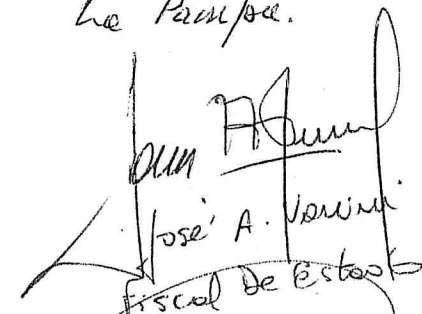 La Pampa.
José A. Vanini
Fiscal De Estado